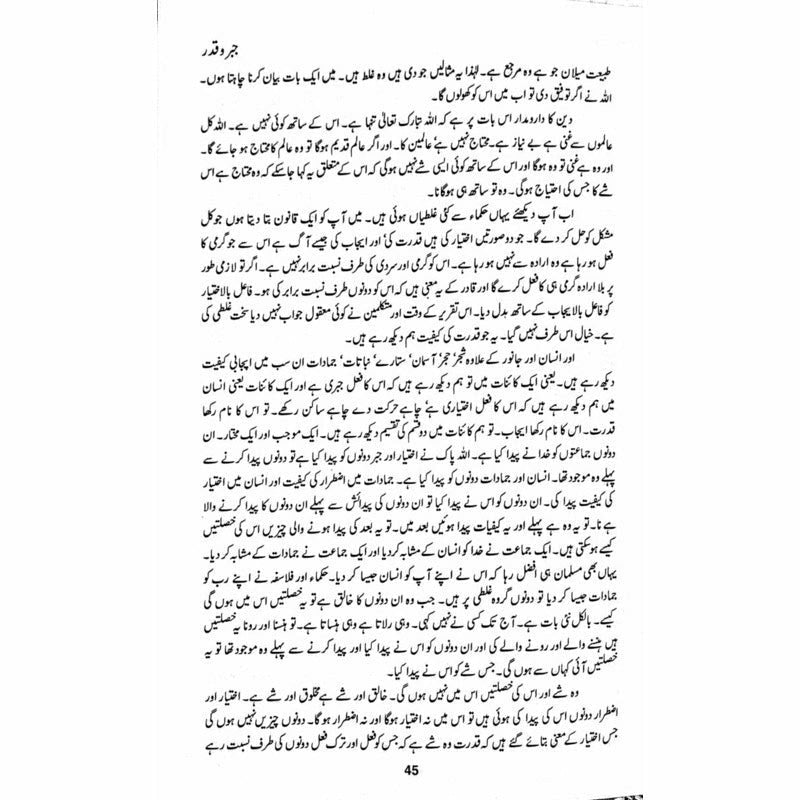 جبر و قدر
طبیعت میلان جو ہے وہ مرجع ہے۔ لہٰذا یہ مثالیں جو دی ہیں وہ غلط ہیں۔ میں ایک بات بیان کرنا چاہتا ہوں۔
اللہ نے اگر توفیق دی تو اب میں اس کو کھولوں گا۔
دین کا دارومدار اس بات پر ہے کہ اللہ تبارک تعالیٰ تنہا ہے۔ اس کے ساتھ کوئی نہیں ہے۔ اللہ کل
عالموں سے غنی ہے بے نیاز ہے۔ محتاج نہیں ہے عالمین کا۔ اور اگر عالم قدیم ہوگا تو وہ عالم کا محتاج ہو جائے گا۔
اور وہ ہے غنی تو وہ ہوگا اور اس کے ساتھ کوئی ایسی شے نہیں ہوگی کہ اس کے متعلق یہ کہا جا سکے کہ وہ محتاج ہے اس
شے کا جس کی احتیاج ہوگی۔ وہ تو ساتھ ہی ہوگا نا۔
اب آپ دیکھئے یہاں حکماء سے کئی غلطیاں ہوئی ہیں۔ میں آپ کو ایک قانون بتا دیتا ہوں جو کل
مشکل کو حل کر دے گا۔ جو دو صورتیں اختیار کی ہیں قدرت کی' اور ایجاب کی جیسے آگ ہے اس سے جو گرمی کا
فعل ہو رہا ہے وہ ارادہ سے نہیں ہو رہا ہے۔ اس کو گرمی اور سردی کی طرف نسبت برابر نہیں ہے۔ اگر تو لازمی طور
پر بلا ارادہ گرمی ہی کا فعل کرے گا اور قادر کے یہ معنی ہیں کہ اس کو دونوں طرف نسبت برابر کی ہو۔ فاعل بالاختیار
کو فاعل بالایجاب کے ساتھ بدل دیا۔ اس تقریر کے وقت اور متکلمین نے کوئی معقول جواب نہیں دیا سخت غلطی کی
ہے۔ خیال اس طرف نہیں گیا۔ یہ جو قدرت کی کیفیت ہم دیکھ رہے ہیں۔
اور انسان اور جانور کے علاوہ شجر' حجر' آسمان' ستارے' نباتات' جمادات ان سب میں ایجابی کیفیت
دیکھ رہے ہیں۔ یعنی ایک کائنات میں تو ہم دیکھ رہے ہیں کہ اس کا فعل جبری ہے اور ایک کائنات یعنی انسان
میں ہم دیکھ رہے ہیں کہ اس کا فعل اختیاری ہے' چاہے حرکت دے چاہے ساکن رکھے۔ تو اس کا نام رکھا
قدرت۔ اس کا نام رکھا ایجاب۔ تو ہم کائنات میں دو قسم کی تقسیم دیکھ رہے ہیں۔ ایک موجب اور ایک مختار۔ ان
دونوں جماعتوں کو خدا نے پیدا کیا ہے۔ اللہ پاک نے اختیار اور جبر دونوں کو پیدا کیا ہے تو دونوں پیدا کرنے سے
پہلے وہ موجود تھا۔ انسان اور جمادات دونوں کو پیدا کیا ہے۔ جمادات میں اضطرار کی کیفیت اور انسان میں اختیار
کی کیفیت پیدا کی۔ ان دونوں کو اس نے پیدا کیا تو ان دونوں کی پیدائش سے پہلے ان دونوں کا پیدا کرنے والا
ہے نا۔ تو یہ وہ ہے پہلے اور یہ کیفیات پیدا ہوئیں بعد میں۔ تو یہ بعد کی پیدا ہونے والی چیزیں اس کی خصلتیں
کیسے ہو سکتی ہیں۔ ایک جماعت نے خدا کو انسان کے مشابہ کر دیا اور ایک جماعت نے جمادات کے مشابہ کر دیا۔
یہاں بھی مسلمان ہی افضل رہا کہ اس نے اپنے آپ کو انسان جیسا کر دیا۔ حکماء اور فلاسفہ نے اپنے رب کو
جمادات جیسا کر دیا تو دونوں گروہ غلطی پر ہیں۔ جب وہ ان دونوں کا خالق ہے تو یہ خصلتیں اس میں ہوں گی
کیسے۔ بالکل نئی بات ہے۔ آج تک کسی نے نہیں کہی۔ وہی رلاتا ہے وہی ہنساتا ہے۔ تو ہنسنا اور رونا یہ خصلتیں
ہیں ہنسنے والے اور رونے والے کی اور ان دونوں کو اس نے پیدا کیا اور پیدا کرنے سے پہلے وہ موجود تھا تو یہ
خصلتیں آئی کہاں سے ہوں گی۔ جس شے کو اس نے پیدا کیا۔
وہ شے اور اس کی خصلتیں اس میں نہیں ہوں گی۔ خالق اور شے ہے مخلوق اور شے ہے۔ اختیار اور
اضطرار دونوں اس کی پیدا کی ہوئی ہیں تو اس میں نہ اختیار ہوگا اور نہ اضطرار ہوگا۔ دونوں چیزیں نہیں ہوں گی
جس اختیار کے معنی بتائے گئے ہیں کہ قدرت وہ شے ہے کہ جس کو فعل اور ترک فعل دونوں کی طرف نسبت رہے
45